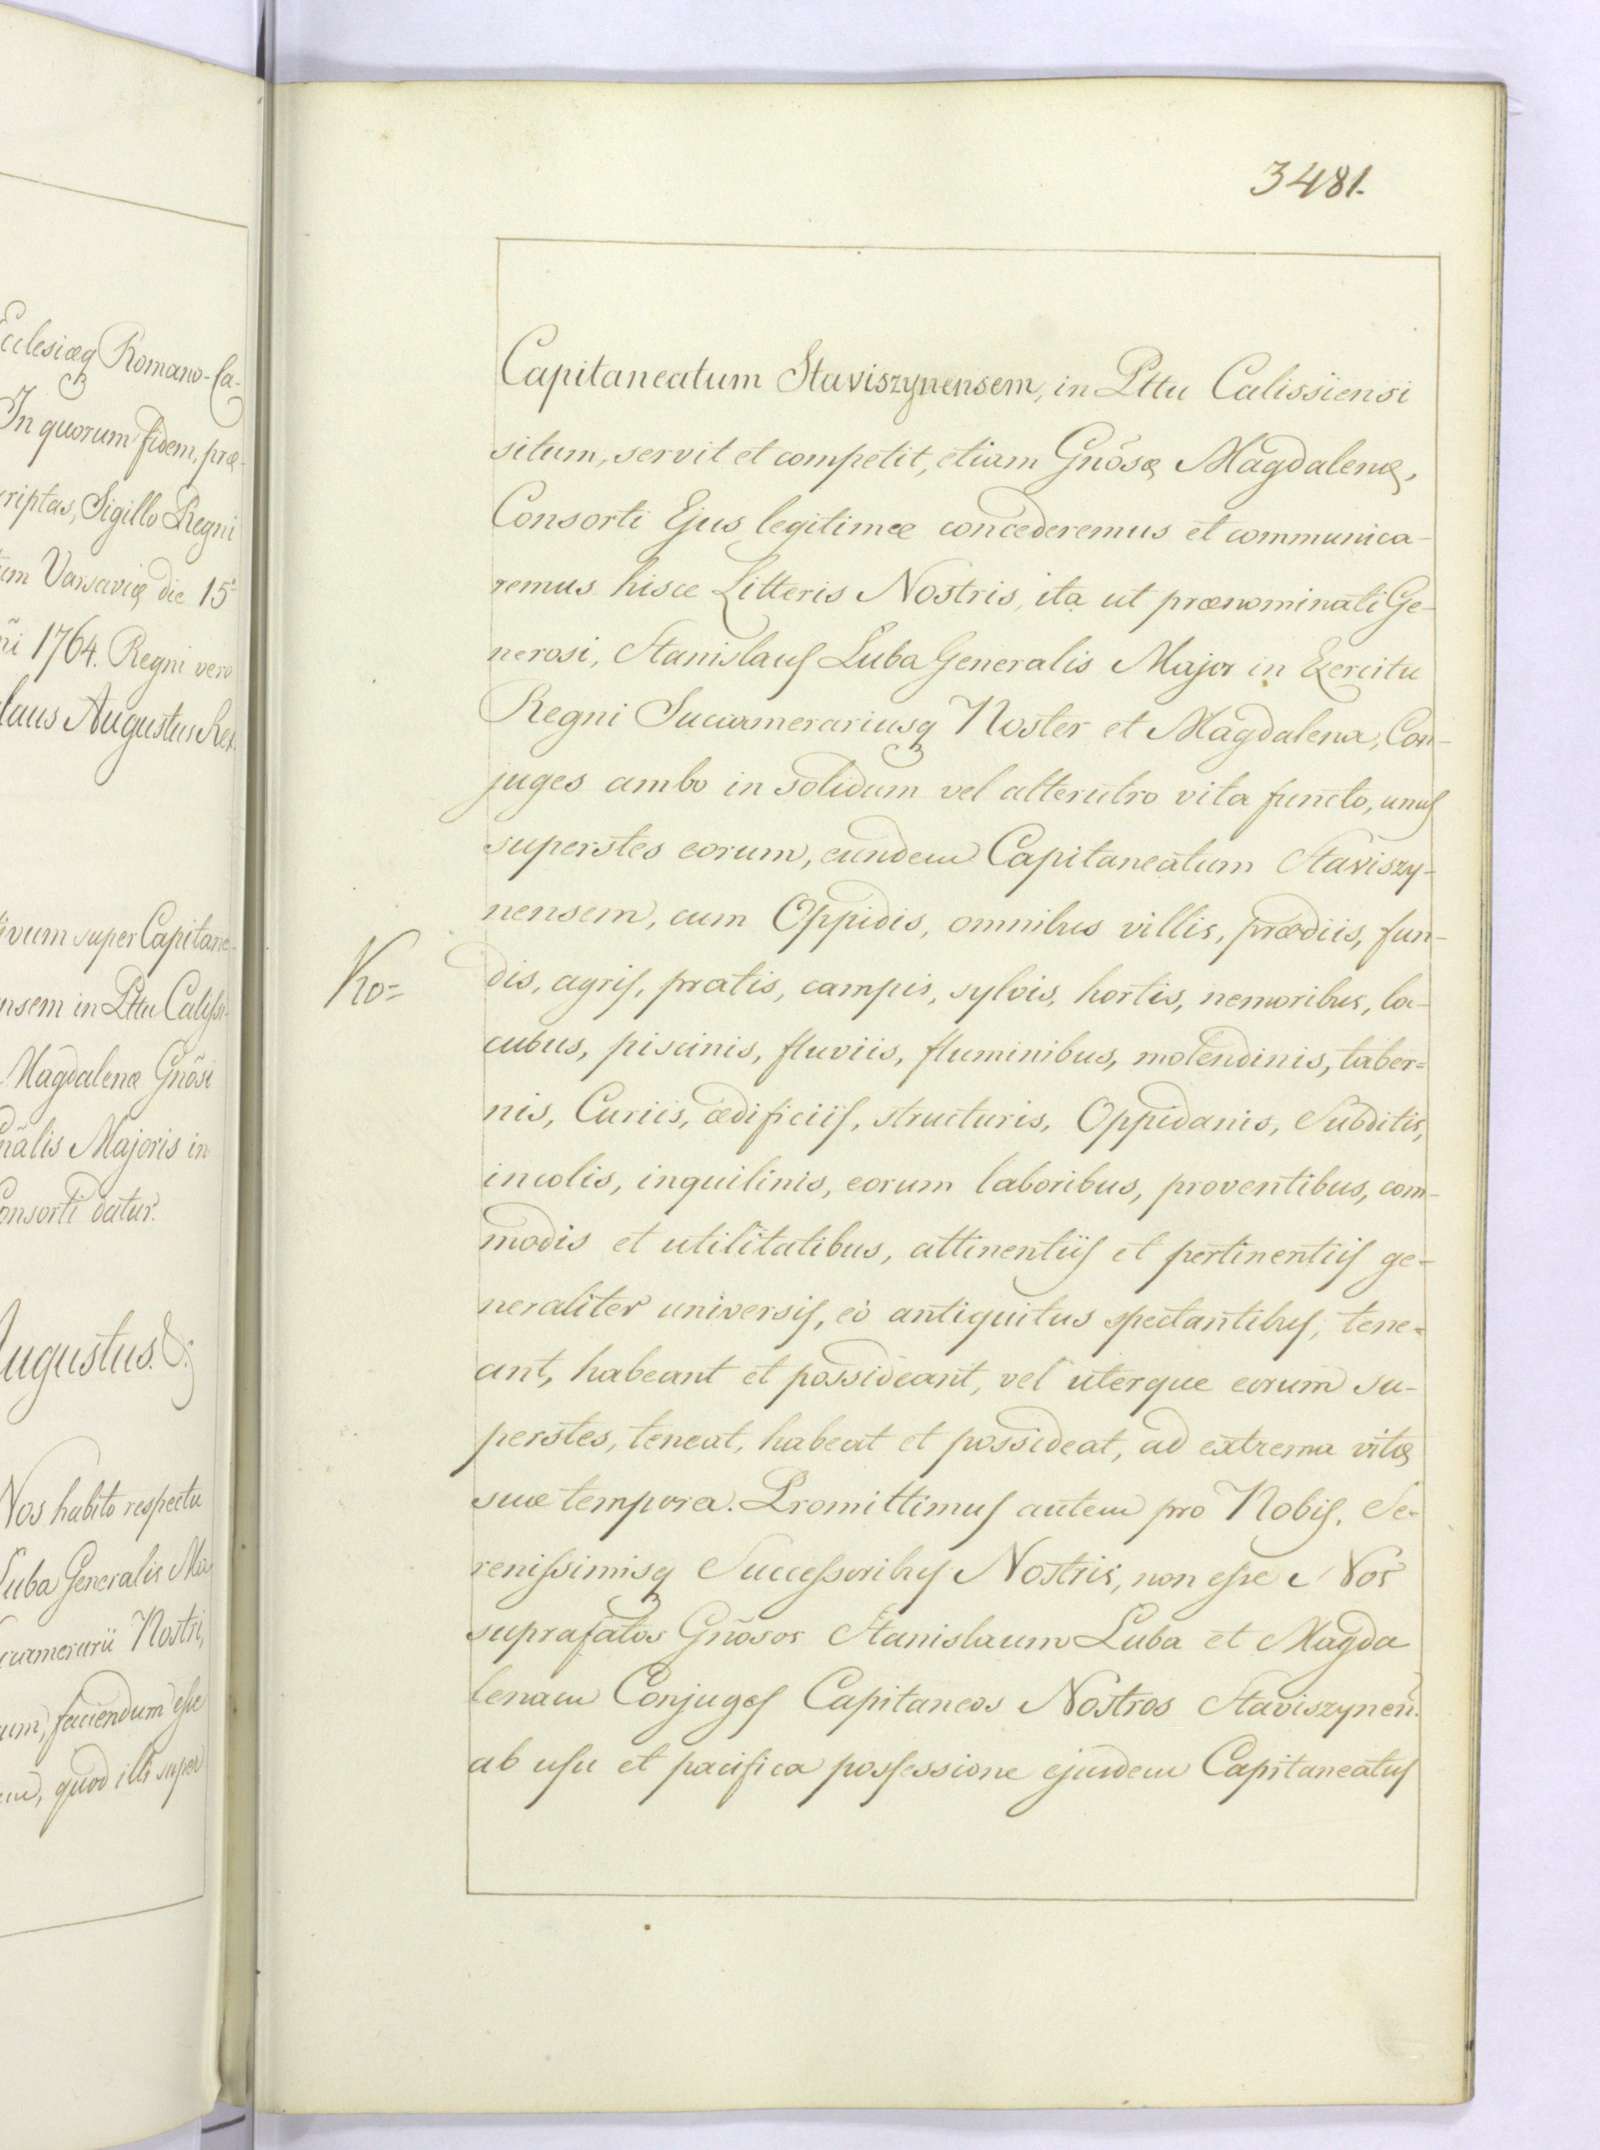 Ecclesiæq Romano-Ca-
In quorum fidem, præ-
riptas, Sigillo Regni
um Varsaviæ die 15
ñi 1764. Regni vero
laus Augustus Rex.
ivum super Capitane-
nsem in Pttu Caliss-
Magdalenæ Gnõsi
ñalis Majoris in
Consorti datur.
Augustus. &;
Nos habito respectu
Luba Generalis Ma-
ccamerarii Nostri,
um, faciendum esse
em, quod illi super
3481.
Capitaneatum Staviszynensem, in Pttu Calissiensi
situm, servit et competit, etiam Gnõsæ Magdalenæ,
Consorti Ejus legitimæ concederemus et communica-
remus hisce Litteris Nostris, ita ut prænominati Ge-
nerosi, Stanislaus Luba Generalis Major in Exercitu
Regni Succamerariusq Noster et Magdalena, Con-
juges ambo in solidum vel alterutro vita functo, unus
superstes eorum, eundem Capitaneatum Staviszy-
nensem, cum Oppidis, omnibus villis, prædiis, fun-
Ko=
dis, agris, pratis, campis, sylvis, hortis, nemoribus, la-
cubus, piscinis, fluviis, fluminibus, molendinis, taber=
nis, Curiis, ædificiis, structuris, Oppidanis, Subditis,
incolis, inquilinis, eorum laboribus, proventibus, com-
modis et utilitatibus, attinentiis et pertinentiis ge-
neraliter universis, eò antiquitus spectantibus, tene=
ant, habeant et possideant, vel uterque eorum su-
perstes, teneat, habeat et possideat, ad extrema vitæ
suæ tempora. Promittimus autem pro Nobis, Se-
renissimisq Successoribus Nostris, non esse Nos
suprafatos Gñosos Stanislaum Luba et Magda
lenam Conjuges Capitaneos Nostros Staviszynen.
ab usu et pacifica possessione ejusdem Capitaneatus